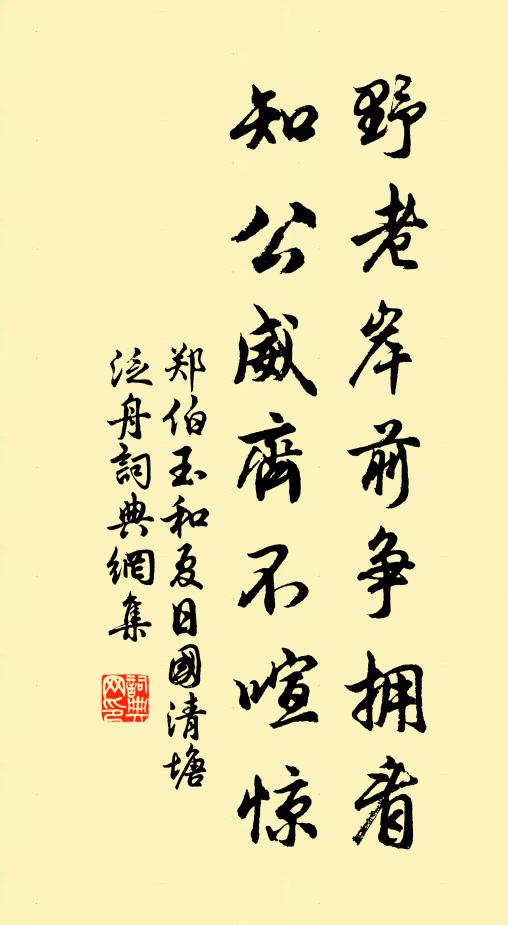 野老岸前争拥看
知公威齊不喧惊
郑伯玉和夏日國清塘
泛舟詞典網集
詞典
网印